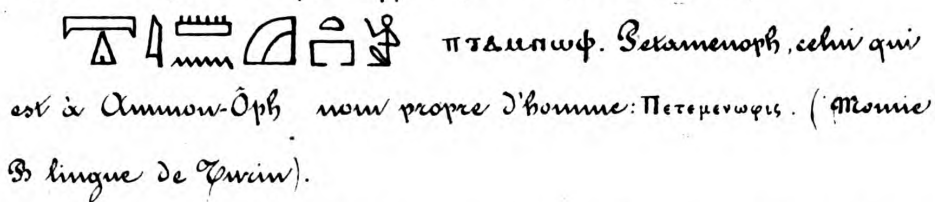 ⲡⲧⲁⲙⲛⲱⲫ. Petamenoph, celui qui
est à Ammon-Ôph nom propre d'homme: Πετεμενωφις. (Momie
B lingue de Turin).